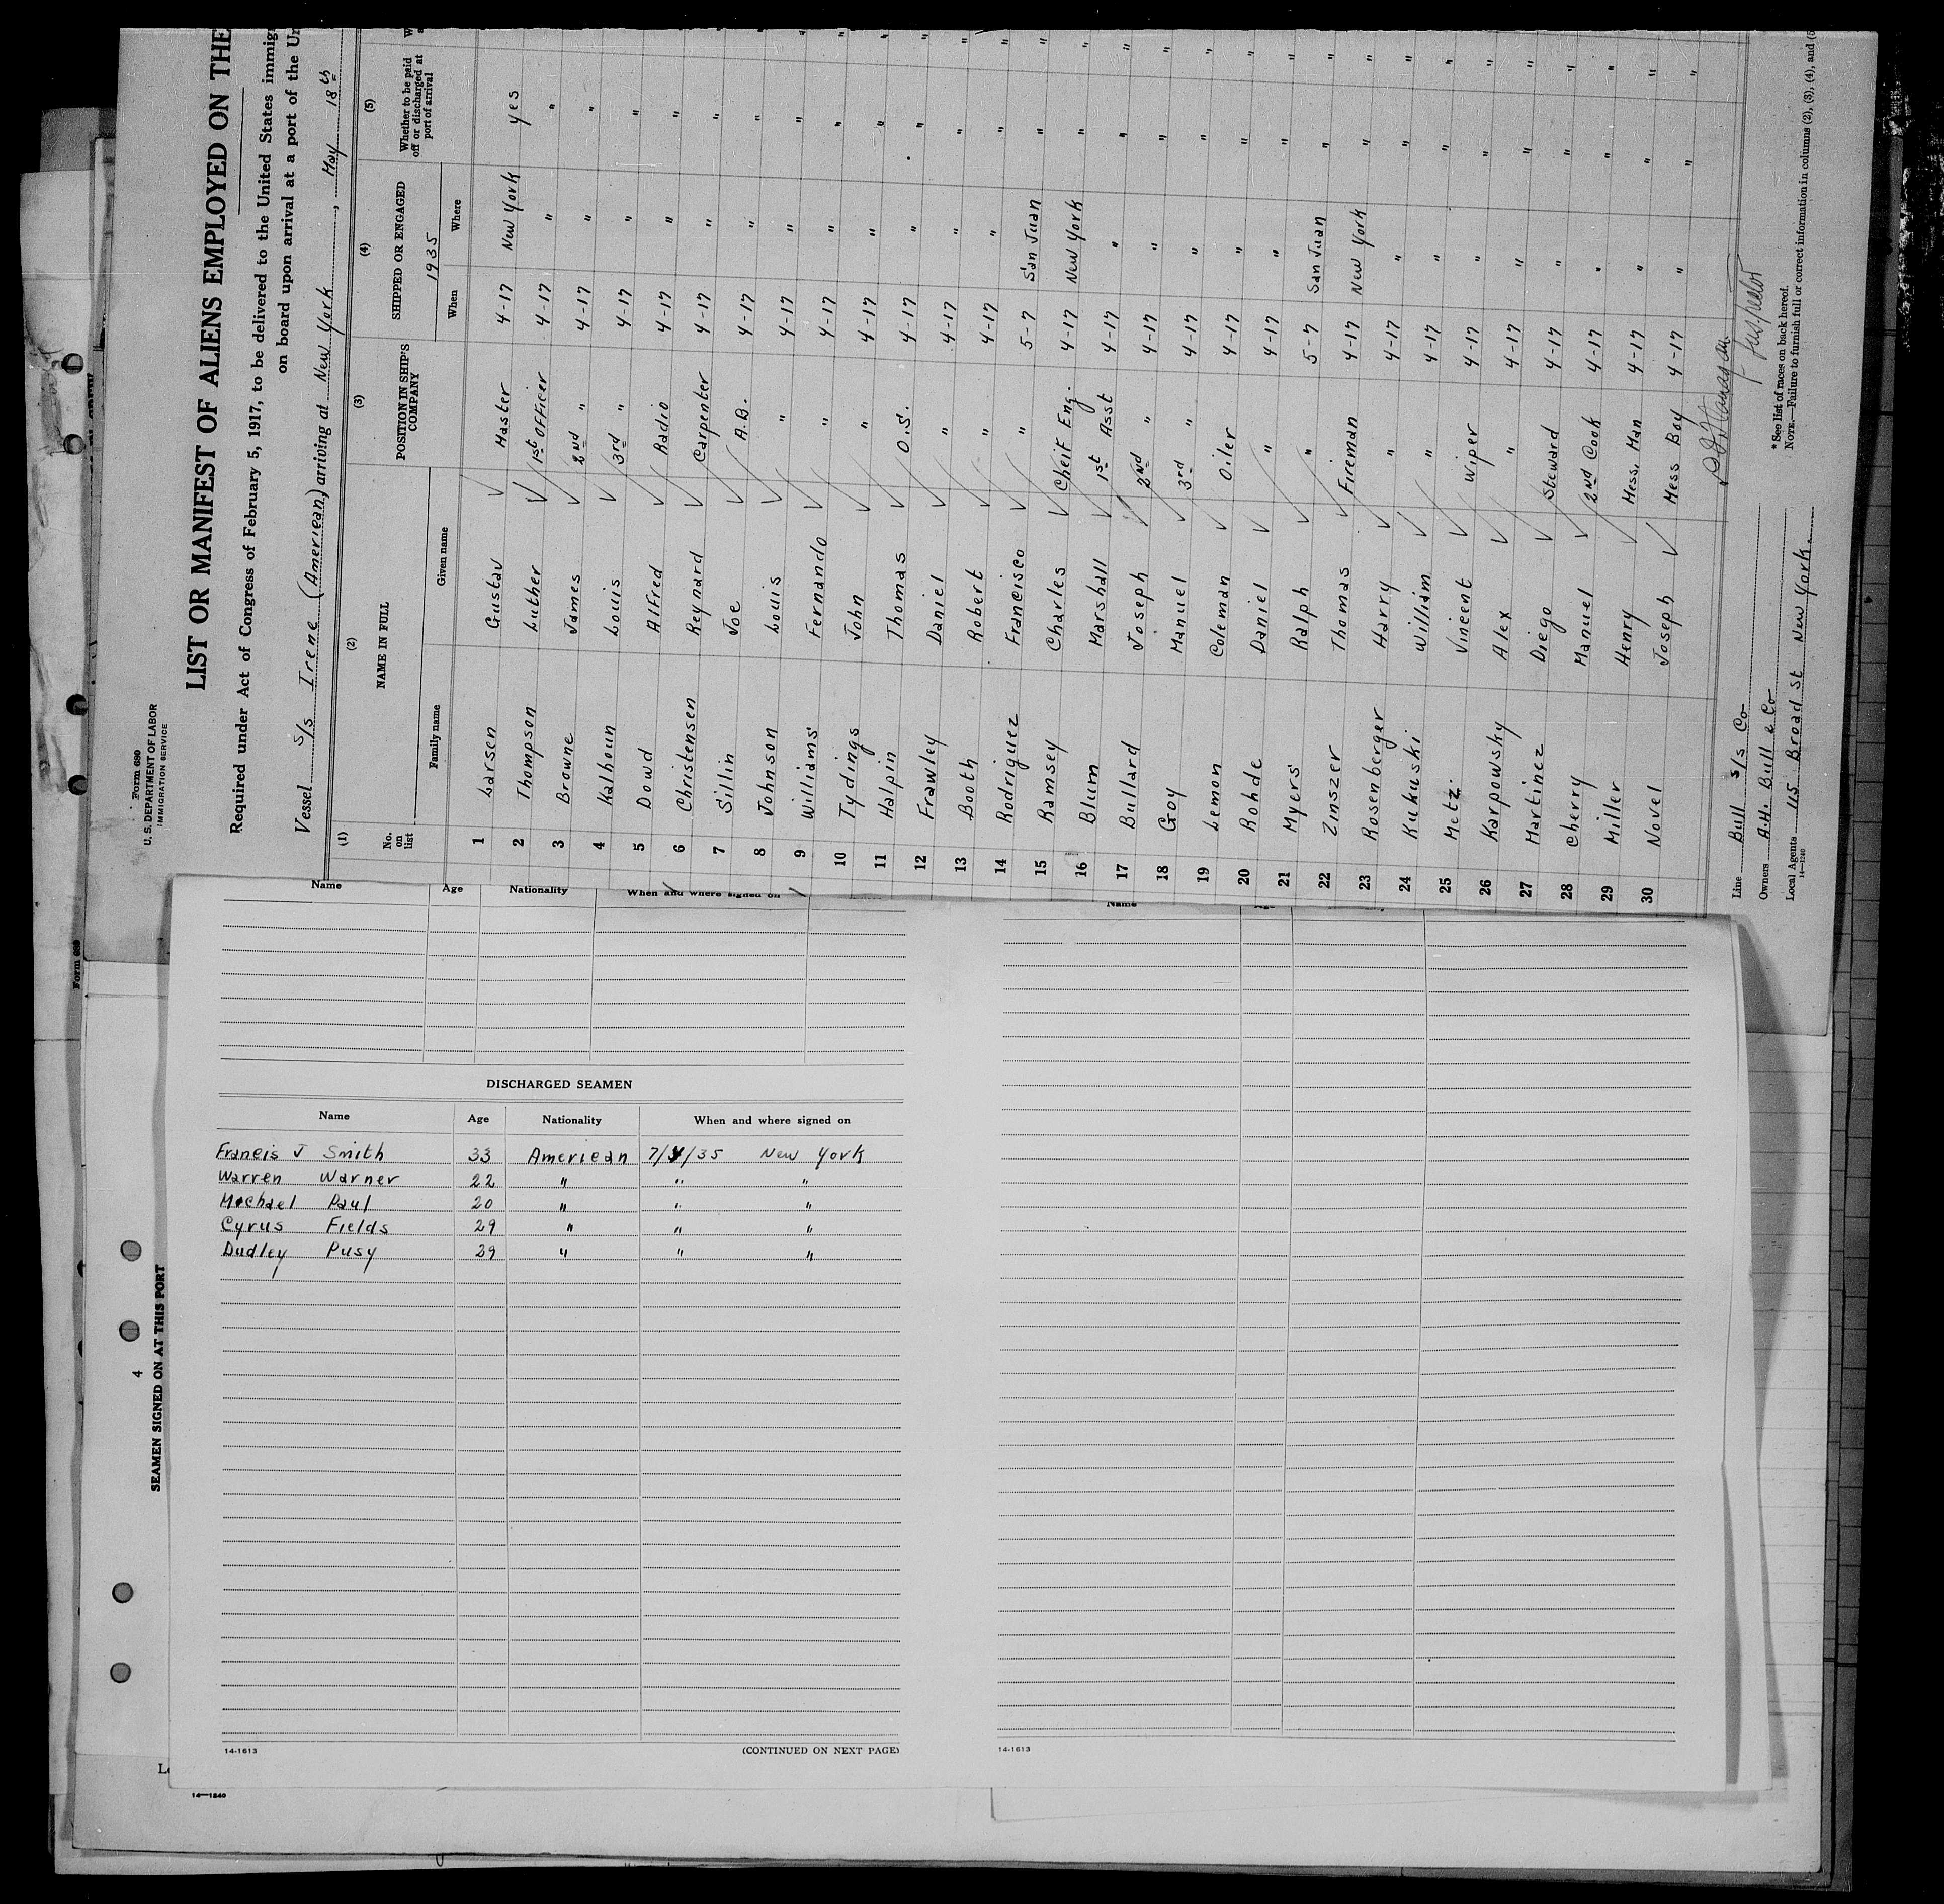 Form 680
U. S. DEPARTMENT OF LABOR
IMMIGRATION SERVICE
LIST OR MANIFEST OF ALIENS EMPLOYED ON THE
Required under Act of Congress of February 5, 1917, to be delivered to the United States immig
on board upon arrival at a port of the Un
Vessel S/s Irene (American) arriving at New York, May 18th
(1) (2) (3) (4) (5)
No. on list NAME IN FULL POSITION IN SHIP'S COMPANY SHIPPED OR ENGAGED Whether to be paid off or discharged at port of arrival
1935
Family name Given name When Where
1 Larsen Gustav Master 4-17 New York yes
2 Thompson Luther 1st Officer 4-17 " "
3 Browne James 2nd " 4-17 " "
4 Kalhoun Louis 3rd " 4-17 " "
5 Dowd Alfred Radio 4-17 " "
6 Christensen Reynard Carpenter 4-17 " "
7 Sillin Joe A.B. 4-17 " "
8 Johnson Louis " 4-17 " "
9 Williams Fernando " 4-17 " "
10 Tydings John " 4-17 " "
11 Halpin Thomas O.S. 4-17 " "
12 Frawley Daniel " 4-17 " "
13 Booth Robert " 4-17 " "
14 Rodriguez Francisco " 5-7 San Juan "
15 Ramsey Charles Cheif Eng. 4-17 New York "
16 Blum Marshall 1st Asst 4-17 " "
17 Bullard Joseph 2nd " 4-17 " "
18 Goy Manuel 3rd " 4-17 " "
19 Lemon Coleman Oiler 4-17 " "
20 Rohde Daniel " 4-17 " "
21 Myers Ralph " 5-7 San Juan "
22 Zinszer Thomas Fireman 4-17 New York "
23 Rosenberger Harry " 4-17 " "
24 Kukuski William " 4-17 " "
25 Metz Vincent Wiper 4-17 " "
26 Karpowsky Alex " 4-17 " "
27 Martinez Diego Steward 4-17 " "
28 Cherry Manuel 2nd Cook 4-17 " "
29 Miller Henry Mess. Man 4-17 " "
30 Novel Joseph Mess Boy 4-17 " "
Inspector
Line Bull S/s Co
Owners A.H. Bull & Co
Local Agents 115 Broad St New York.
14-1240
*See list of races on back hereof.
NOTE.—Failure to furnish full or correct information in columns (2), (3), (4), and (5
Form 689
Name Age Nationality When and where signed on
DISCHARGED SEAMEN
Name Age Nationality When and where signed on
Francis J Smith 33 American 7/3/35 New York
Warren Warner 22 " " "
Michael Paul 20 " " "
Cyrus Fields 29 " " "
Dudley Pusy 29 " " "
14-1613 (CONTINUED ON NEXT PAGE)
Name
14-1613
4
SEAMEN SIGNED ON AT THIS PORT
14-1240